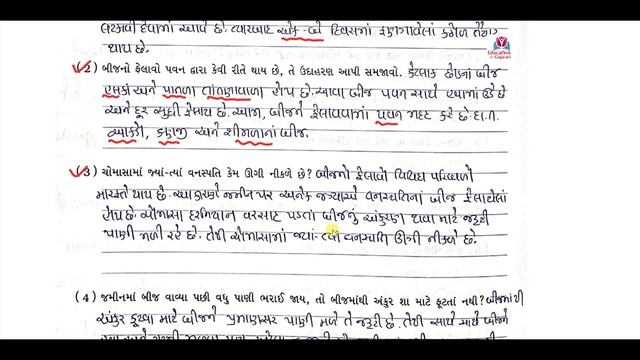 લટકાવી દેવામાં આવે છે. ત્યારબાદ એક-બે દિવસમાં ફણગાવેલાં કઠોળ તૈયાર
થાય છે.
Education
(2) બીજનો ફેલાવો પવન દ્વારા કેવી રીતે થાય છે, તે ઉદાહરણ આપી સમજાવો. કેટલાક છોડનાં બીજ
હલકાં અને પાતળા તાંતણાવાળા હોય છે. આવા બીજ પવન સાથે હવામાં ઉડે છે
અને દૂર સુધી ફેલાય છે. આમ, બીજને ફેલાવવામાં પવન મદદ કરે છે. દા.ત.
આકડો, કણજી અને શીમળાનાં બીજ.
(3) ચોમાસામાં જ્યાં-ત્યાં વનસ્પતિ કેમ ઊગી નીકળે છે? બીજનો ફેલાવો વિવિધ પરિબળો
મારફતે થાય છે. આ કારણે જમીન પર અનેક જગ્યાએ વનસ્પતિનાં બીજ ફેલાયેલાં
હોય છે. ચોમાસા દરમિયાન વરસાદ પડતાં બીજનું અંકુરણ થવા માટે જરૂરી
પાણી મળી રહે છે. તેથી ચોમાસામાં જ્યાં-ત્યાં વનસ્પતિ ઊગી નીકળે છે.
(4) જમીનમાં બીજ વાવ્યા પછી વધુ પાણી ભરાઈ જાય, તો બીજમાંથી અંકુર શા માટે ફૂટતાં નથી? બીજમાંથી
અંકુર ફૂટવા માટે બીજને પ્રમાણસર પાણી મળે તે જરૂરી છે. તેથી સાથે સાથે બીજને